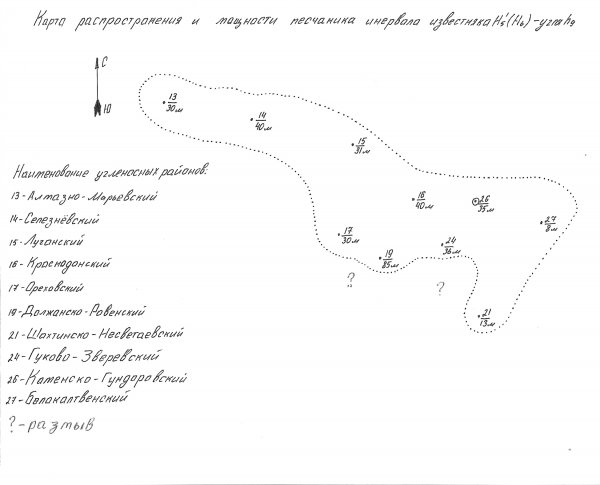 Карта распространения и мощности песчаника инервала известняка H₅¹(H₆)-угля h₉
С
Ю
13
30м
14
40м
15
31м
16
40м
26
35м
27
8м
17
30м
19
85м
24
36м
?
?
21
13м
Наименование угленосных районов:
13-Алмазно-Марьевский
14-Селезнёвский
15-Луганский
16-Краснодонский
17-Ореховский
19-Должанско-Ровенский
21-Шахтинско-Несветаевский
24-Гуково-Зверевский
26-Каменско-Гундоровский
27-Белокалтвенский
?-размыв